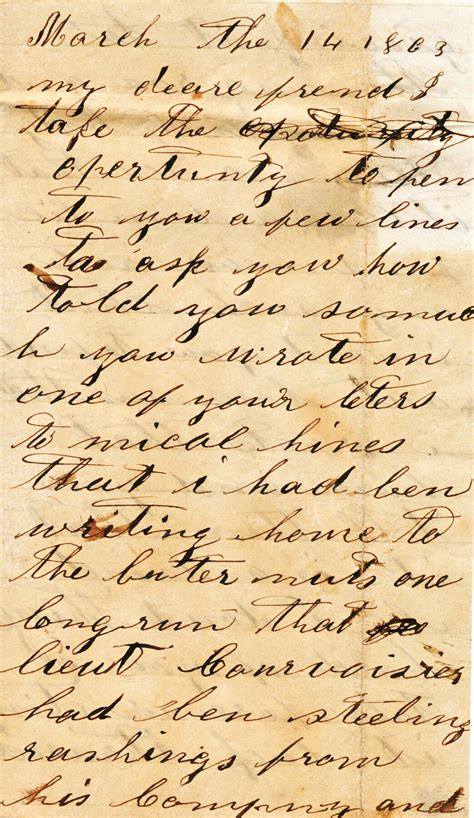 March the 14 1863
my deare frend I
take the opoturity
opertunty to pen
to you a few lines
to ask you how
told you somuc
h you wrote in
one of your leters
to mical hines
that i had ben
writing home to
the buter nuts one
long run that
lieut Courvoisier
had ben steeling
rashings from
his Company and